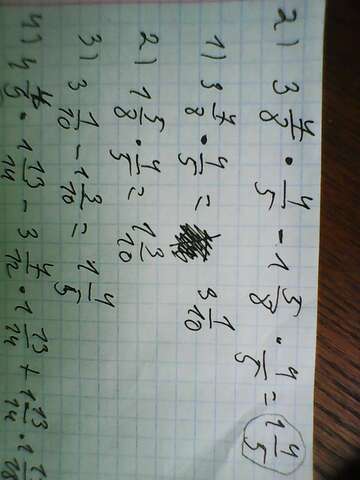 2) 3 7/8 · 4/5 - 1 5/8 · 4/5 = 1 4/5
1) 3 7/8 · 4/5 = 3 1/10
2) 1 5/8 · 4/5 = 1 3/10
3) 3 1/10 - 1 3/10 = 1 4/5
4) 4 · 1 13/14 - 3 7/12 · 1 13/14 + 1 13/14 · 1